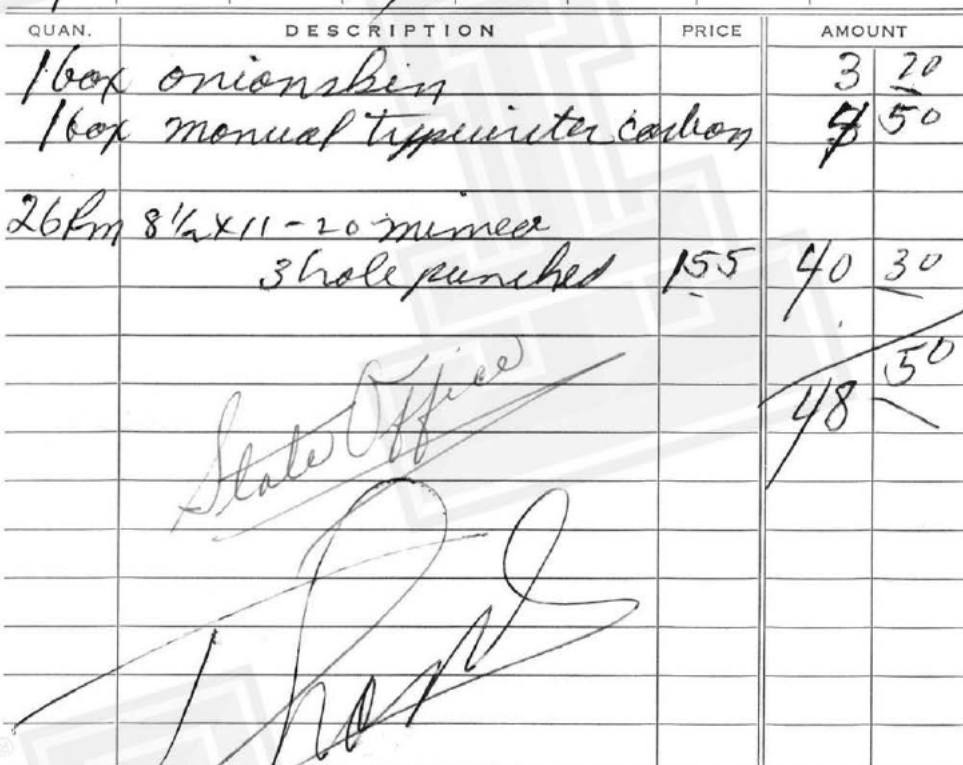 QUAN. DESCRIPTION PRICE AMOUNT
1 box onionskin 3 20
1 box manual typewriter carbon 4 50
26 Rm 8 1/2 x 11 - 20 mimeo
3 hole punched 155 40 30
48 50
State Office